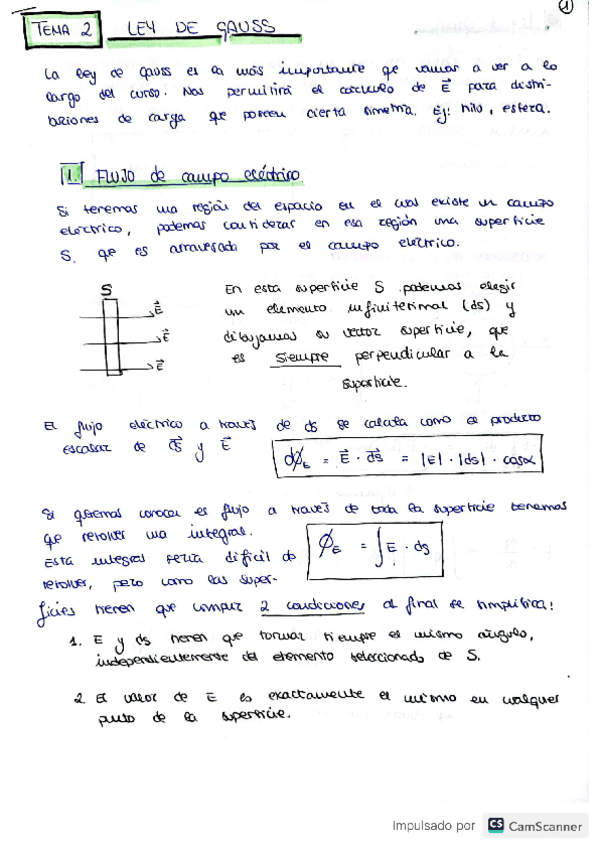 1
TEMA 2 LEY DE GAUSS
La ley de gauss es la más importante qe vamos a ver a lo
largo del curso. Nos permitirá el cálculo de E⃗ para distri-
buciones de carga que poseen cierta simetría. Ej: hilo, esfera.
1. FLUJO de campo eléctrico
Si tenemos una región del espacio en el cual existe un campo
eléctrico, podemos considerar en esa región una superficie
S, que es atravesada por el campo eléctrico.
S
E⃗
E⃗
E⃗
En esta superficie S podemos elegir
un elemento infinitesimal (ds) y
dibujamos su vector superficie, que
es siempre perpendicular a la
superficie.
El flujo eléctrico a través de ds se calcula como el producto
escalar de ds⃗ y E⃗
dØE = E⃗ · ds⃗ = |E| · |ds| · cosα
Si queremos conocer el flujo a través de toda la superficie tenemos
que resolver una integral.
ØE = ∫E · ds
Esta integral sería difícil de
resolver, pero como las super-
ficies tienen que cumplir 2 condiciones al final se simplifica:
1. E y ds tienen que formar siempre el mismo ángulo,
independientemente del elemento seleccionado de S.
2. El valor de E es exactamente el mismo en cualquier
punto de la superficie.
Impulsado por CS CamScanner